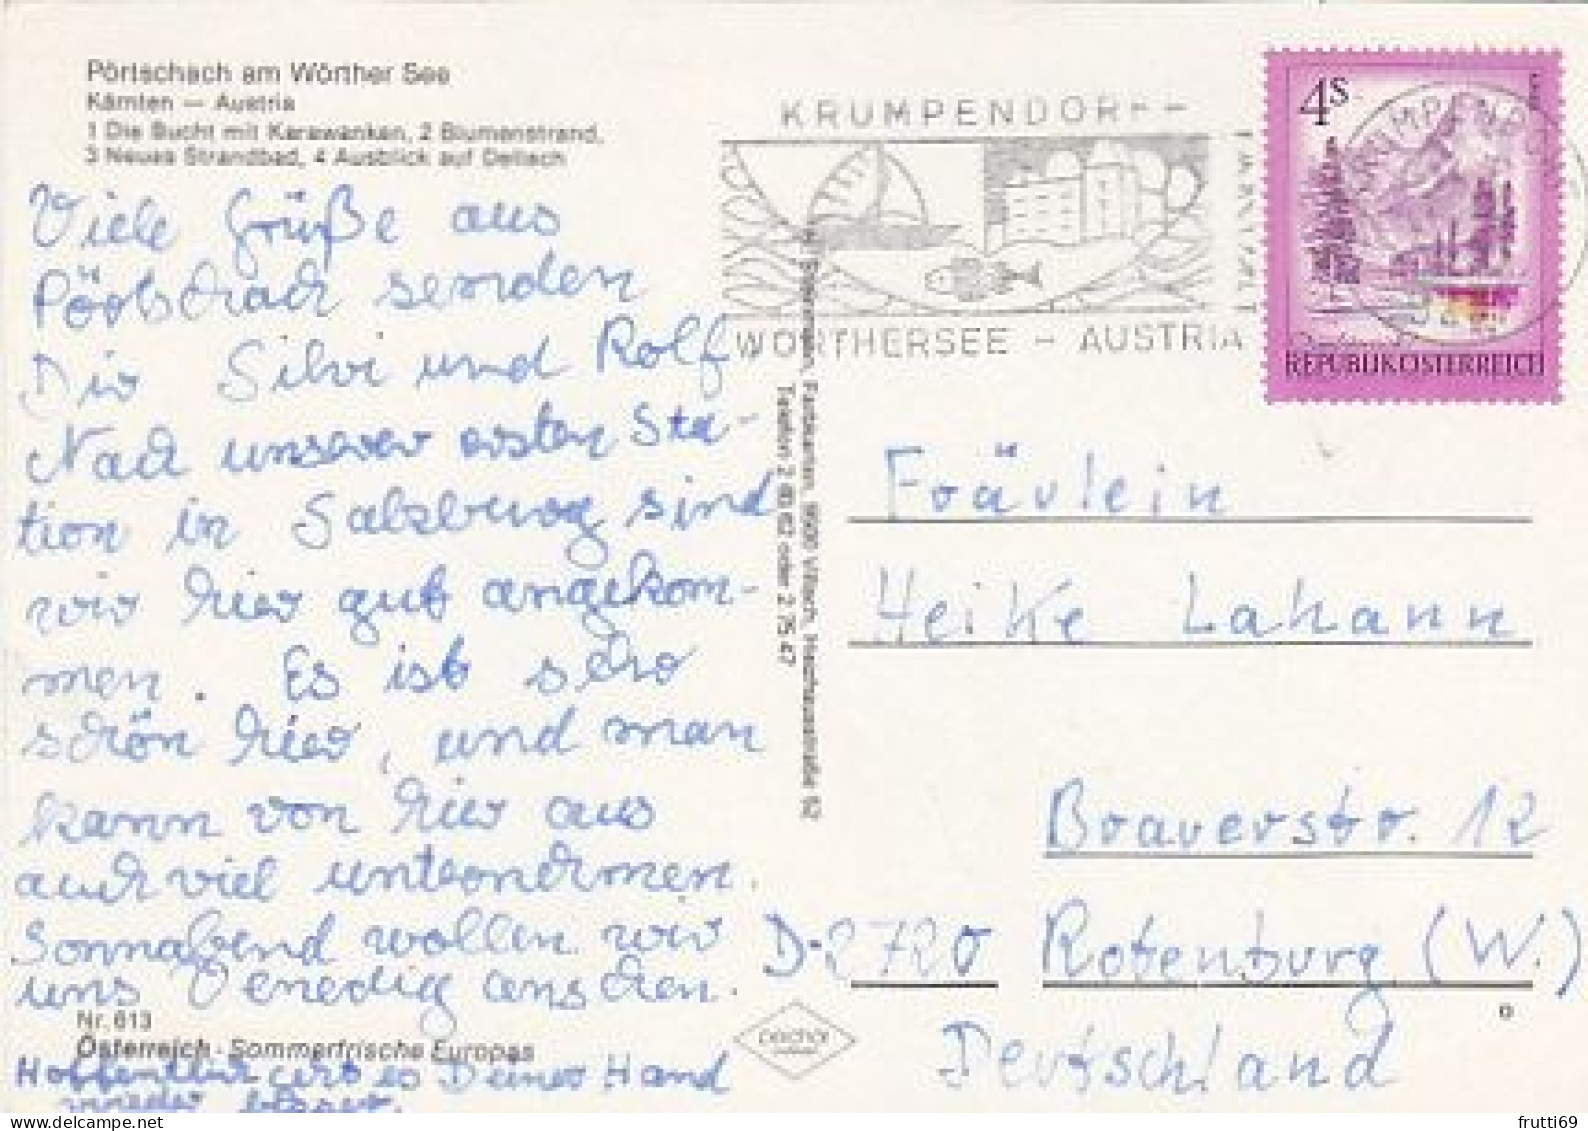 Pörtschach am Wörther See
Kärnten — Austria
1 Die Bucht mit Karawanken, 2 Blumenstrand,
3 Neues Strandbad, 4 Ausblick auf Dellach
Viele Grüße aus
Pörtschach senden
Dir Silvi und Rolf
Nach unserer ersten Sta-
tion in Salzburg sind
wir hier gut angekom-
men. Es ist sehr
schön hier, und man
kann von hier aus
auch viel unternehmen.
Sonnabend wollen wir
uns Venedig ansehen.
Nr. 613
Österreich - Sommerfrische Europas
Hoffentlich geht es Deiner Hand
wieder besser.
Farbkarten, 9500 Villach,
Telefon 2 40 62 oder 2 75 47
KRUMPENDORF
WÖRTHERSEE - AUSTRIA
4S
REPUBLIK ÖSTERREICH
Fräulein
Heike Lahann
Brauerstr. 12
D-2720 Rotenburg (W.)
Deutschland
frutti69
www.delcampe.net